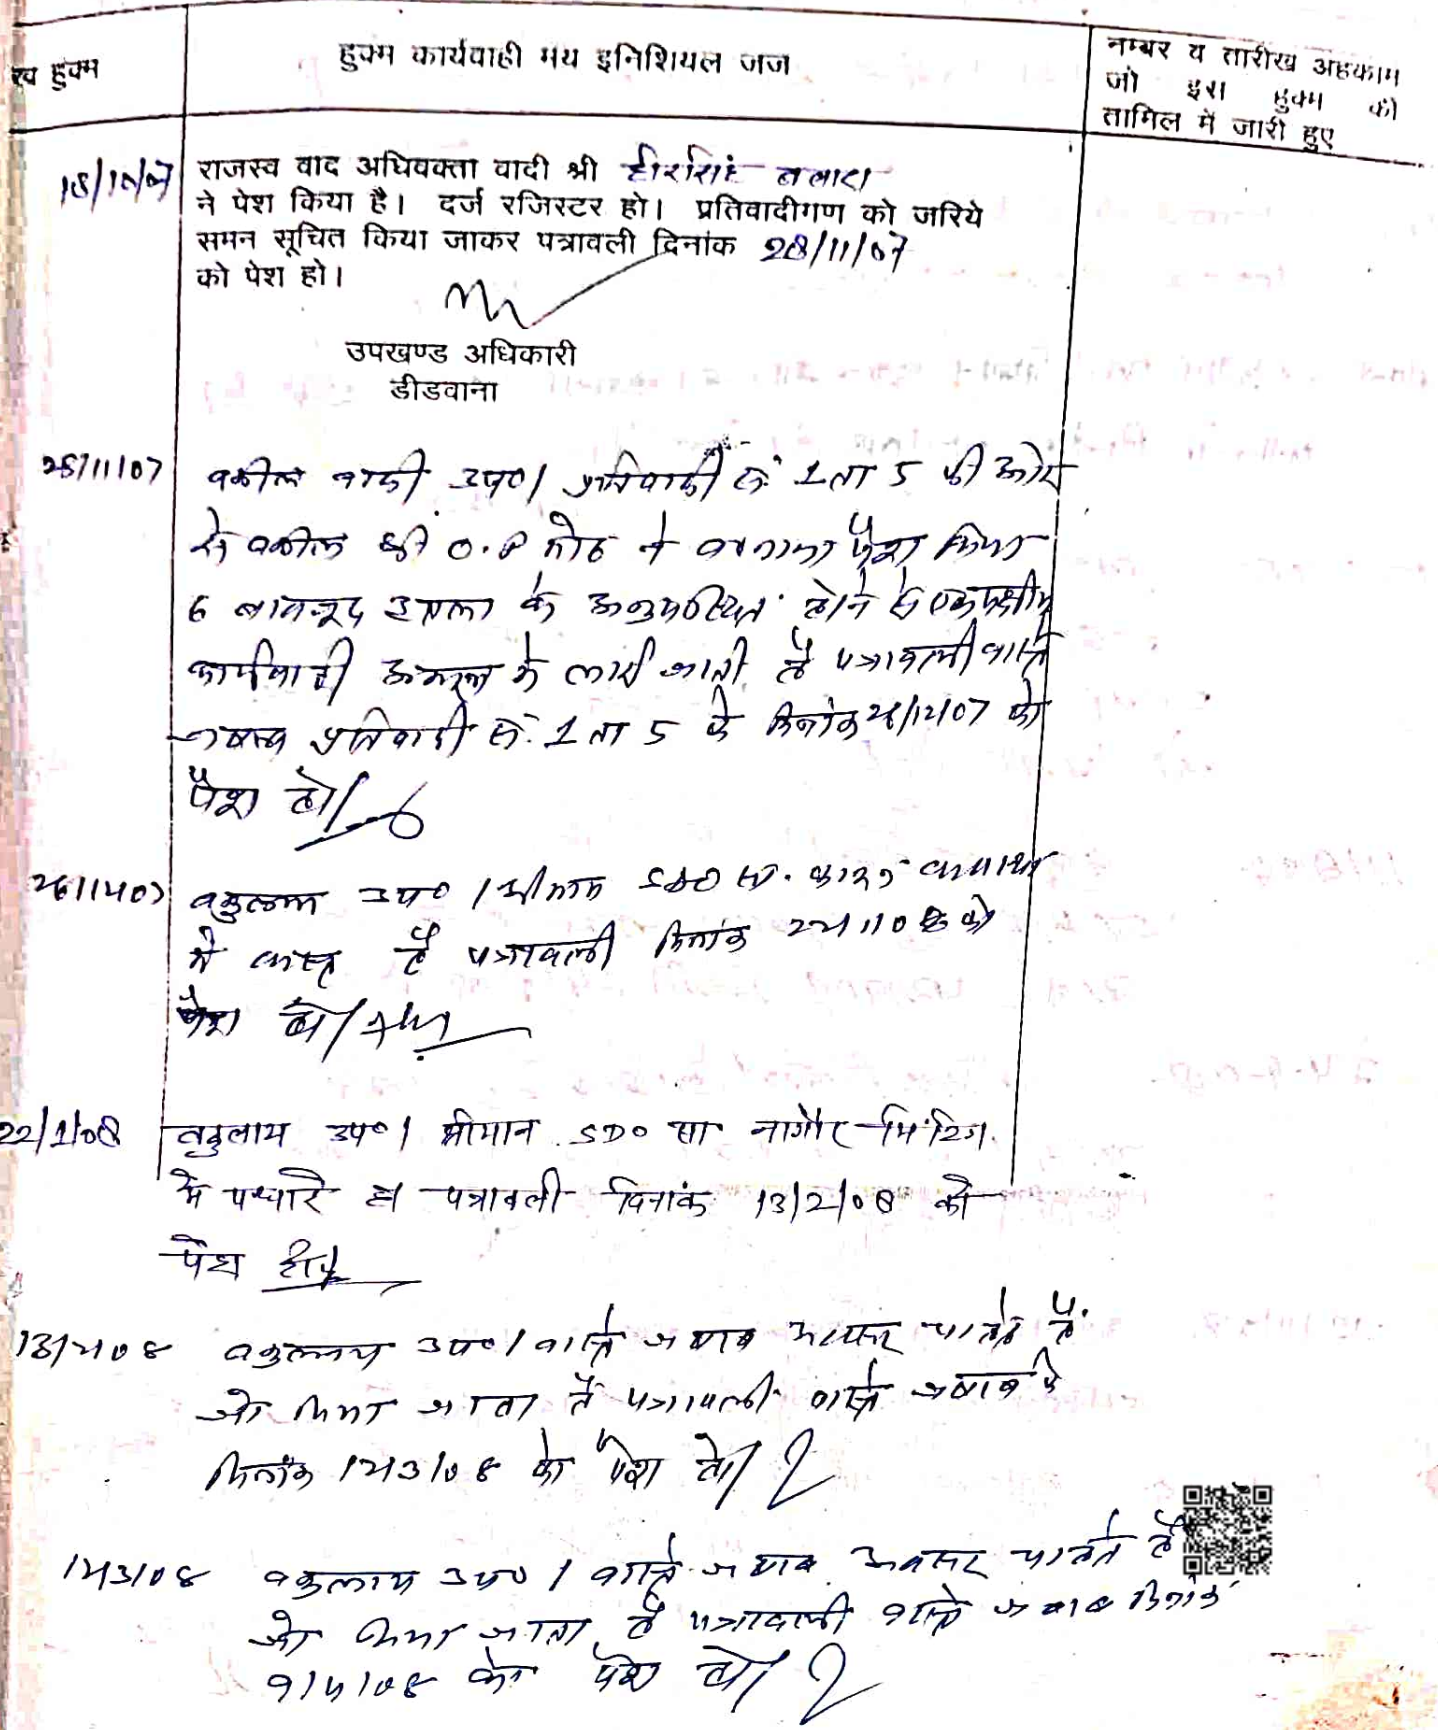 ख हुक्म
हुक्म कार्यवाही मय इनिशियल जज
नम्बर व तारीख अहकाम
जो इस हुक्म की
तामिल में जारी हुए
18/10/07
राजस्व वाद अधिवक्ता वादी श्री
ने पेश किया है। दर्ज रजिस्टर हो। प्रतिवादीगण को जरिये
समन सूचित किया जाकर पत्रावली दिनांक 28/11/07
को पेश हो।
उपखण्ड अधिकारी
डीडवाना
28/11/07
वकील वादी उप०/ प्रतिवादी सं. 1 ता 5 की ओर
से वकील श्री O.P ने पेश किया
6 बावजूद इत्तला के अनुपस्थित होने से एकपक्षीय
कार्यवाही अमल में लायी जाती है पत्रावली वास्ते
जवाब प्रतिवादी सं. 1 ता 5 के दिनांक 26/12/07 को
पेश हो/
26/12/07
वकुलाय उप०/ श्रीमान SDO सा.
में है पत्रावली दिनांक 22/1/08 को
पेश हो/
22/1/08
वकुलाय उप०/ श्रीमान SDO सा नागौर मिटिंग
में पधारे है। पत्रावली दिनांक 13/2/08 को
पेश हो।
13/2/08
वकुलाय उप०/ वास्ते जवाब अवसर चाहते है
जो दिया जाता है पत्रावली वास्ते जवाब के
दिनांक 12/3/08 को पेश हो/
12/3/08
वकुलाय उप०/ वास्ते जवाब अवसर चाहते है
जो दिया जाता है पत्रावली वास्ते जवाब दिनांक
9/4/08 को पेश हो/